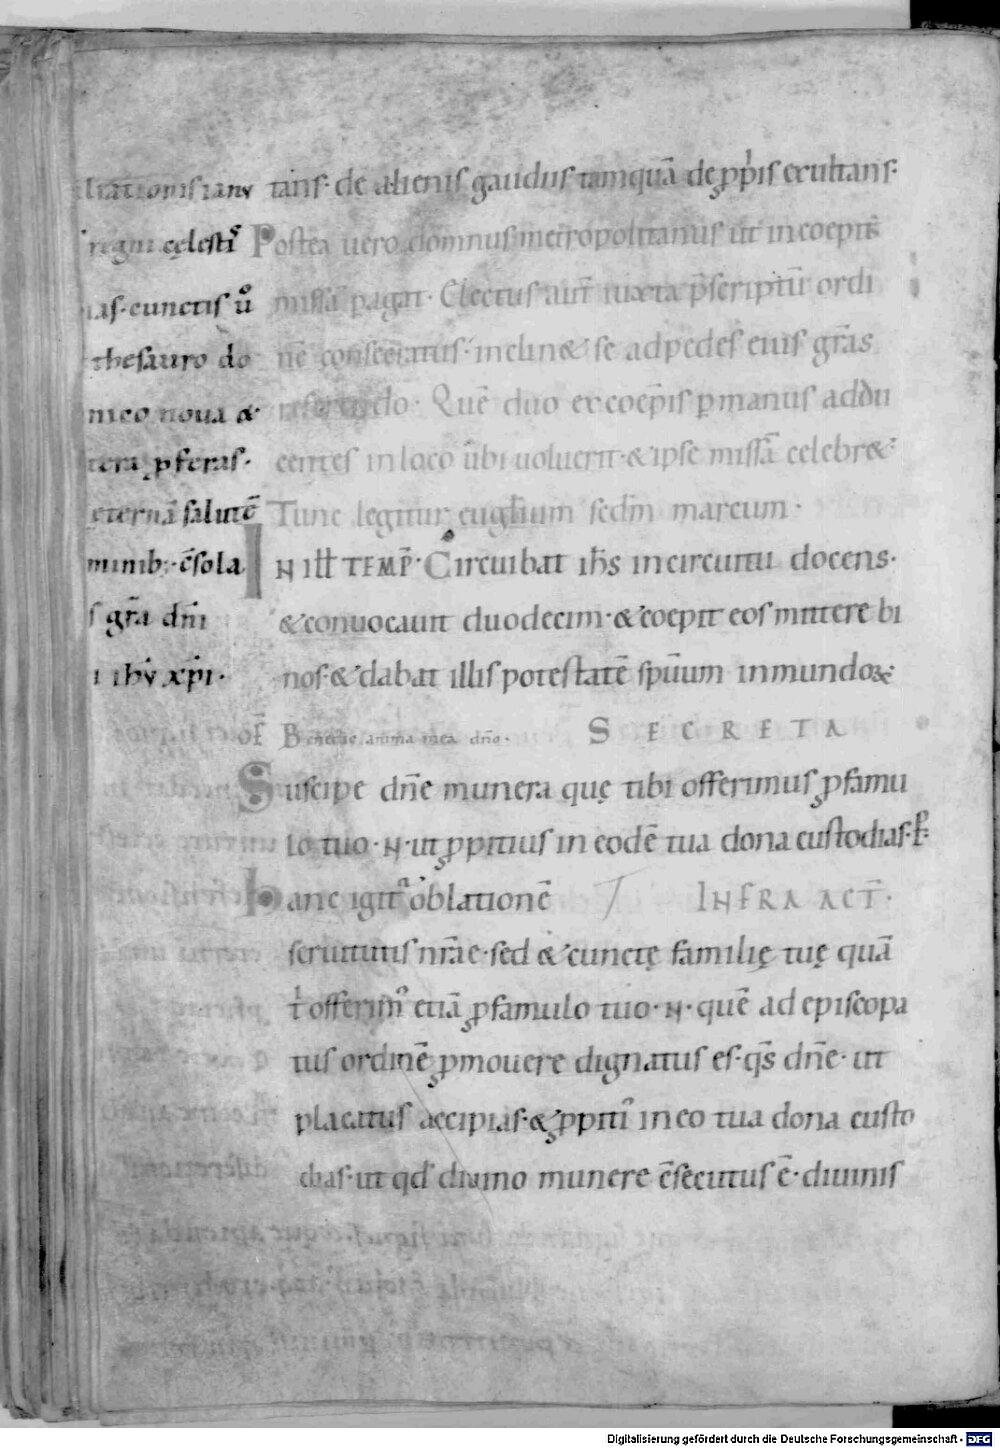 tans· de alienis gaudiis tamquā de ꝓpriis exultans·
Postea uero domnus metropolitanus ut incoepit
missā pagat· Electus aut̄ iuxta p̄scriptū ordi
nē consecratus· inclin& se ad pedes eius gr̄as
referendo· Quē duo ex coep̄is ꝑ manus addu
centes in loco ubi uoluerit· & ipse missā celebr&·
Tunc legitur eugl̄ium sedm̄ marcum·
IN ILL̄ TEMP̄· Circuibat ih̄s in circuitu docens·
& conuocauit duodecim· & coepit eos mittere bi
nos· & dabat illis potestatē spūum inmundoꝝ·
of̄ Benedic anima mea dn̄o· SECRETA
Suscipe dn̄e munera quę tibi offerimus ꝓ famu
lo tuo· N· ut ꝓpitius in eodē tua dona custodias· P̄·
hanc igit̄ oblationē INFRA ACT̄·
seruitutis nr̄ae· sed & cunctę familię tuę quā
t̄ offerim᷒ etiā ꝓ famulo tuo· N· quē ad episcopa
tus ordinē ꝓmouere dignatus es· qs̄ dn̄e· ut
placatus accipias· & ꝓpiti᷒ in eo tua dona custo
dias· ut qd̄ diuino munere c̄secutus ē· diuinis
regni cęlestis
ias· cunctis ūo
thesauro do
nico noua &
tera ꝓferas·
eternā salutē
minib;· c̄sola
s gr̄a dn̄i
i ih̄v xp̄i·